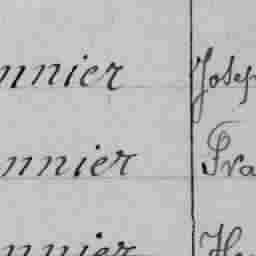 nnier Josep
nnier Fra
nnier He